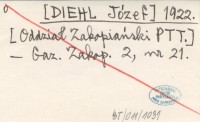 [DIEHL Józef] 1922.
[Oddział Zakopiański PTT.]
– Gaz. Zakop. 2, nr 21.
BT/011/1031